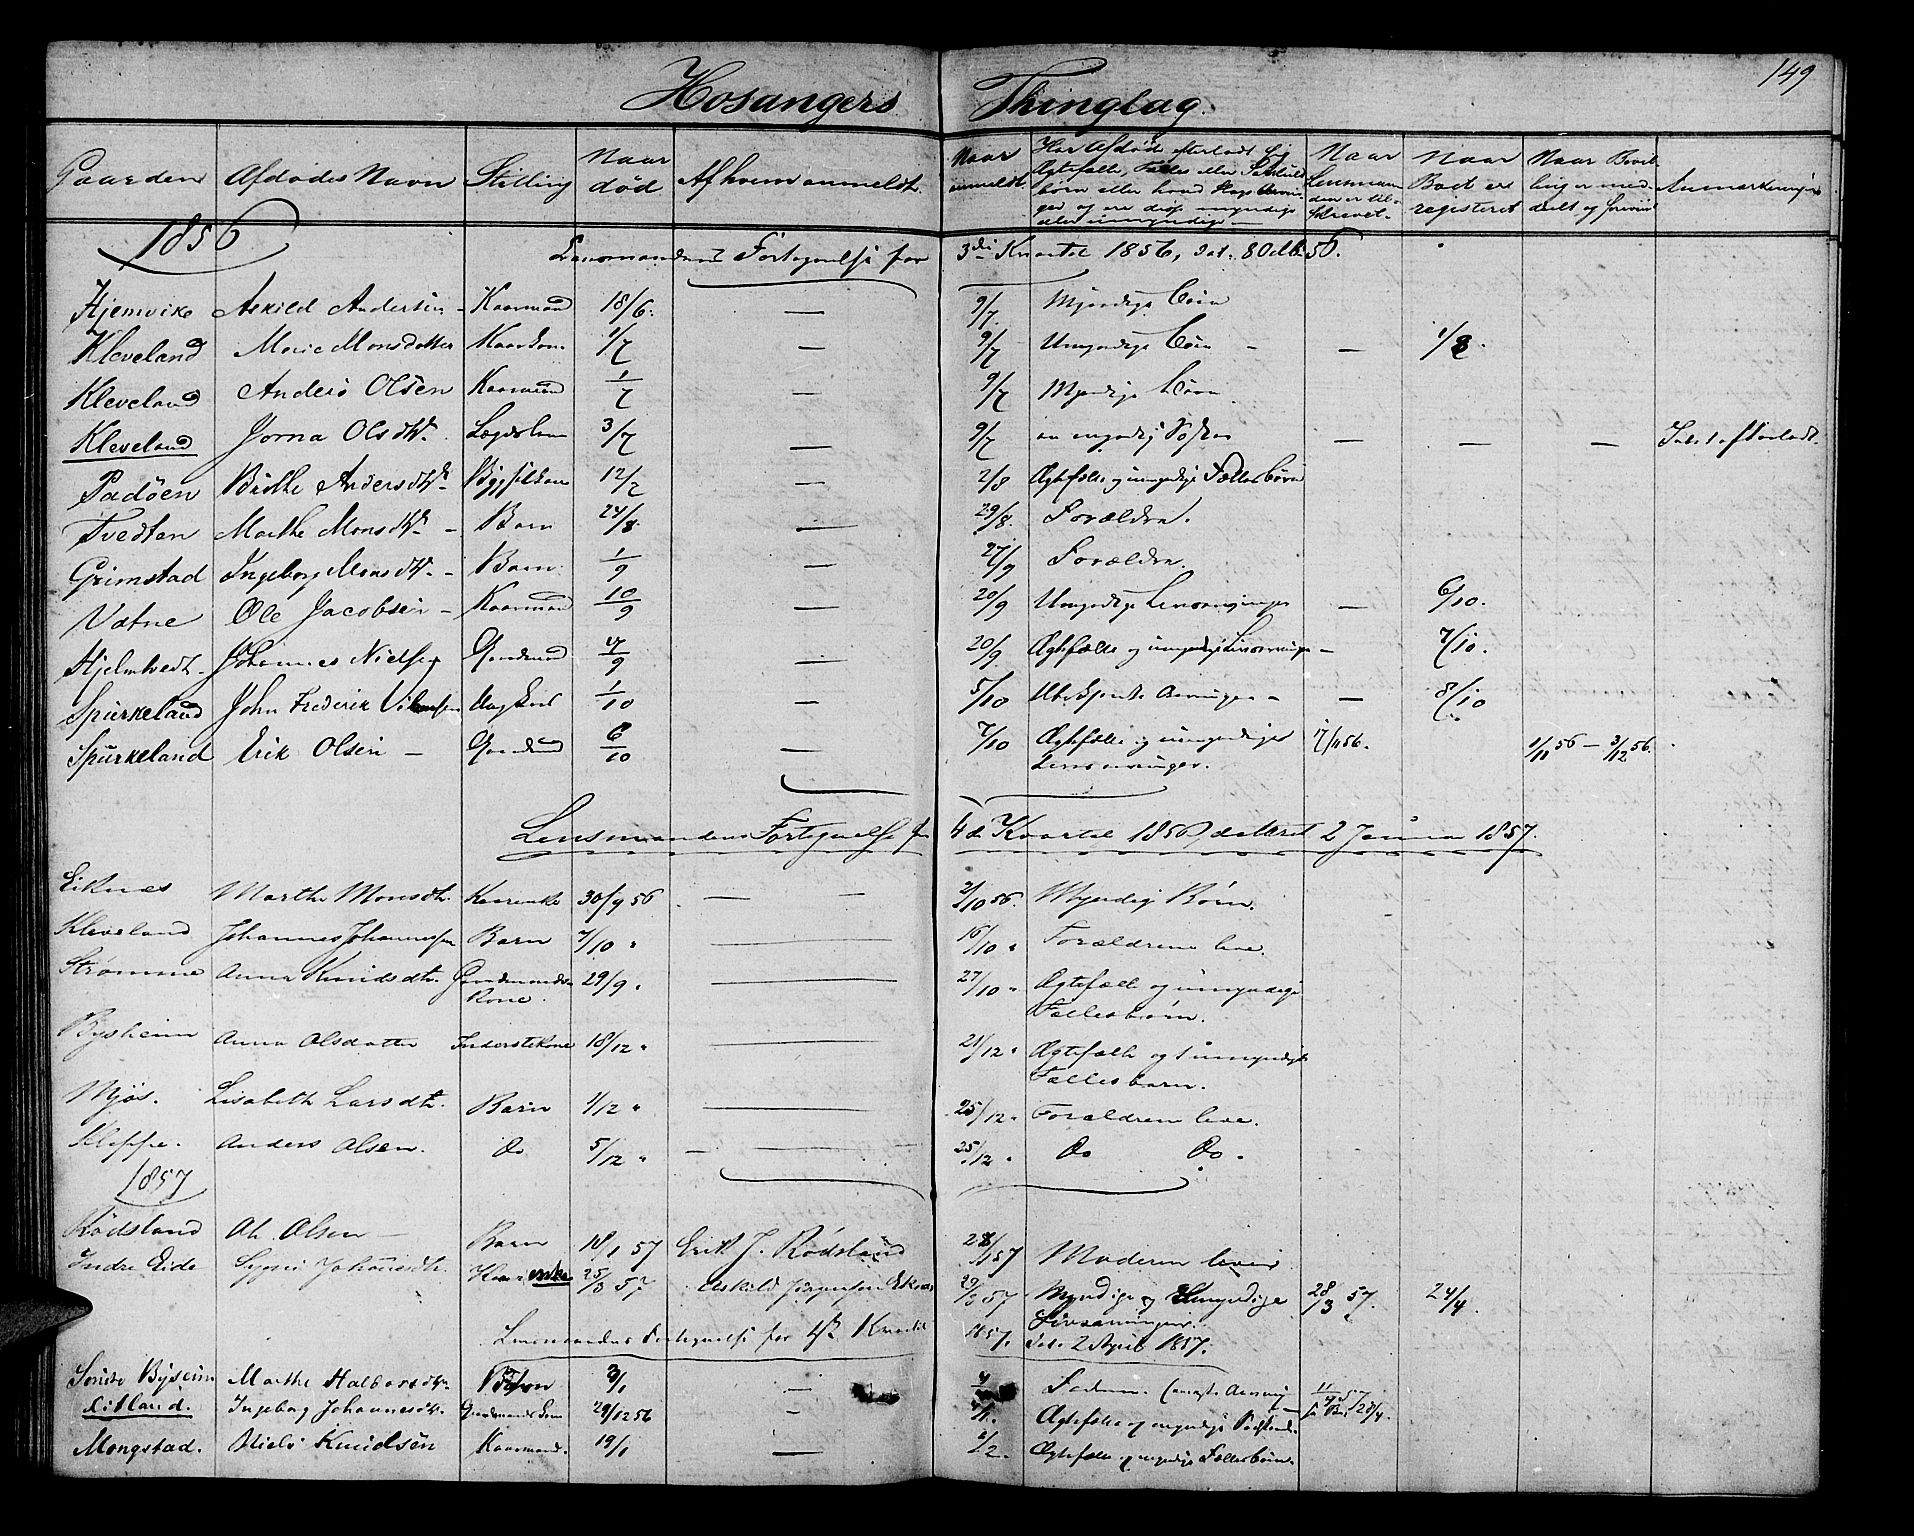 149
Hosangers Thinglag.
Gaarden Afdødes Navn Stilling Naar død Af hvem anmeldt. Naar anmeldt Har Afdøde efterladt sig Ægtefælle, Fælles eller Særkuld børn eller hvad Slags Arvinger og ere disse myndige eller umyndige Naar Lensmanden er tilskrevet Naar Boet er registeret Naar og Anmærkninger
1856
Lensmandens Fortegnelse for 3die Kvartal 1856, dat. 8 Octbr 56.
Hjemvike Askild Andersen Kaarmand 18/6. — 9/7. Myndige Børn
Kleveland Marie Monsdatter Kaarkone 1/7 — 9/7 Umyndige Børn — — 1/8.
Kleveland Anders Olsen Kaarmand 1/7 — 9/7 Myndige Børn
Kleveland Jorna Olsdtr. Lægdslem 3/7 — 9/7 en myndig Søster — — — Intet efterladt.
Padøen Birthe Andersdtr. 12/7 — 2/8 Ægtefælle og umyndige Fællesbørn
Tvedten Marthe Monsdtr. — Barn 24/8. — 29/8. Forældre.
Grimstad Ingeborg Monsdtr. — Barn. 1/9 — 27/9 Forældre.
Vatne Ole Jacobsen — Kaarmand 10/9 — 20/9 Umyndige Livsarvinger — 6/10.
Hjelmtvedt. Johannes Nielsen Gaardmand 17/9 — 20/9 Ægtefælle og umyndige Livsarvinger — 7/10.
Spurkeland John Frederik 1/10 — 5/10 Ubekjendte Arvinger — — 8/10
Spurkeland Erik Olsen — Gaardmand 6/10 — 7/10 Ægtefælle og umyndige Livsarvinger. 17/11 56. 1/11 56 — 3/12 56.
Lensmandens Fortegnelse for 4de Kvartal 1856 dateret 2 Januar 1857.
Eiknes Marthe Monsdtr. Kaarenke 30/9 56 — — 2/10 56. Myndig Børn.
Kleveland Johannes Johannessen Barn 7/10 " — 16/10 " Forældrene leve.
Strømme Anna Knudsdtr. Gaardmands Kone. 29/9 " — 27/10 " Ægtefælle og umyndige Fællesbørn.
Bysheim Anna Olsdatter Inderstekone 18/12 " — 21/12 " Ægtefælle og 1 umyndigt Fællesbarn.
Mjøs. Lisabeth Larsdtr. Barn 1/12 " — 25/12 " Forældrene leve.
Kleppe. Anders Olsen. Do 5/12 " — 25/12 " Do Do.
1857
Rødsland Ole Olsen — Barn 18/1 57 Erik J. Rødsland 28/1 57 Moderen lever
Indre Eide Synni Johannesdtr. Kaarenke 25/3 57 Askild Jørgensen Eknes 27/3 57 Myndige og Umyndige Livsarvinger. 28/3 57. 24/4.
Lensmandens Fortegnelse for 1ste Kvartal 1857. dat. 2 April 1857.
Søndre Byseim Marthe Halvorsdtr. Barn 3/1 — Faderen
Eitland. Ingeborg Johannesdtr. Gaardmands Kone 29/12 56 — Ægtefælle og umyndige 28/4.
Mongstad. Niels Knudsen Kaarmand. 19/1 — 2/2. Ægtefælle og umyndige Fællesbørn.